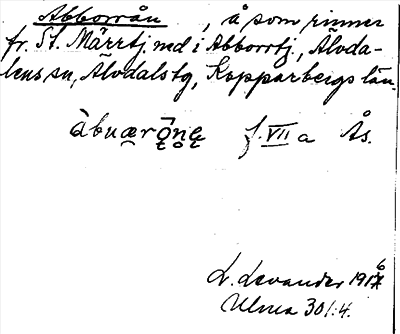 Abborrån, å som rinner
fr. St. Märrtj. ned i Abborrtj., Älvda-
lens sn, Älvdals tg, Kopparbergs län.
àbuærǫ̂nę f. VII a Ås.
L. Levander 1916
Ulma 301:4.